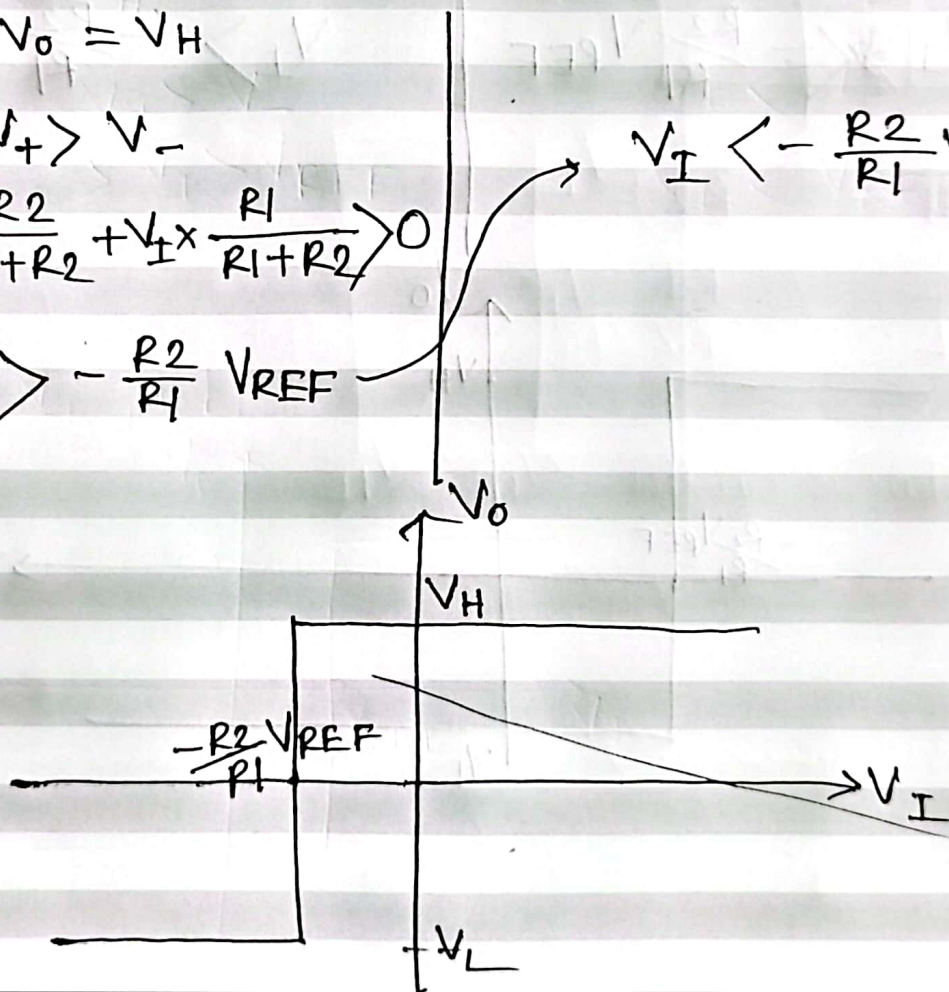 V_O = V_H
V_+ > V_-
R2/+R2 + V_I × R1/(R1+R2) > 0
> - R2/R1 V_REF
V_I < - R2/R1
V_O
V_H
-R2/R1 V_REF
V_I
V_L